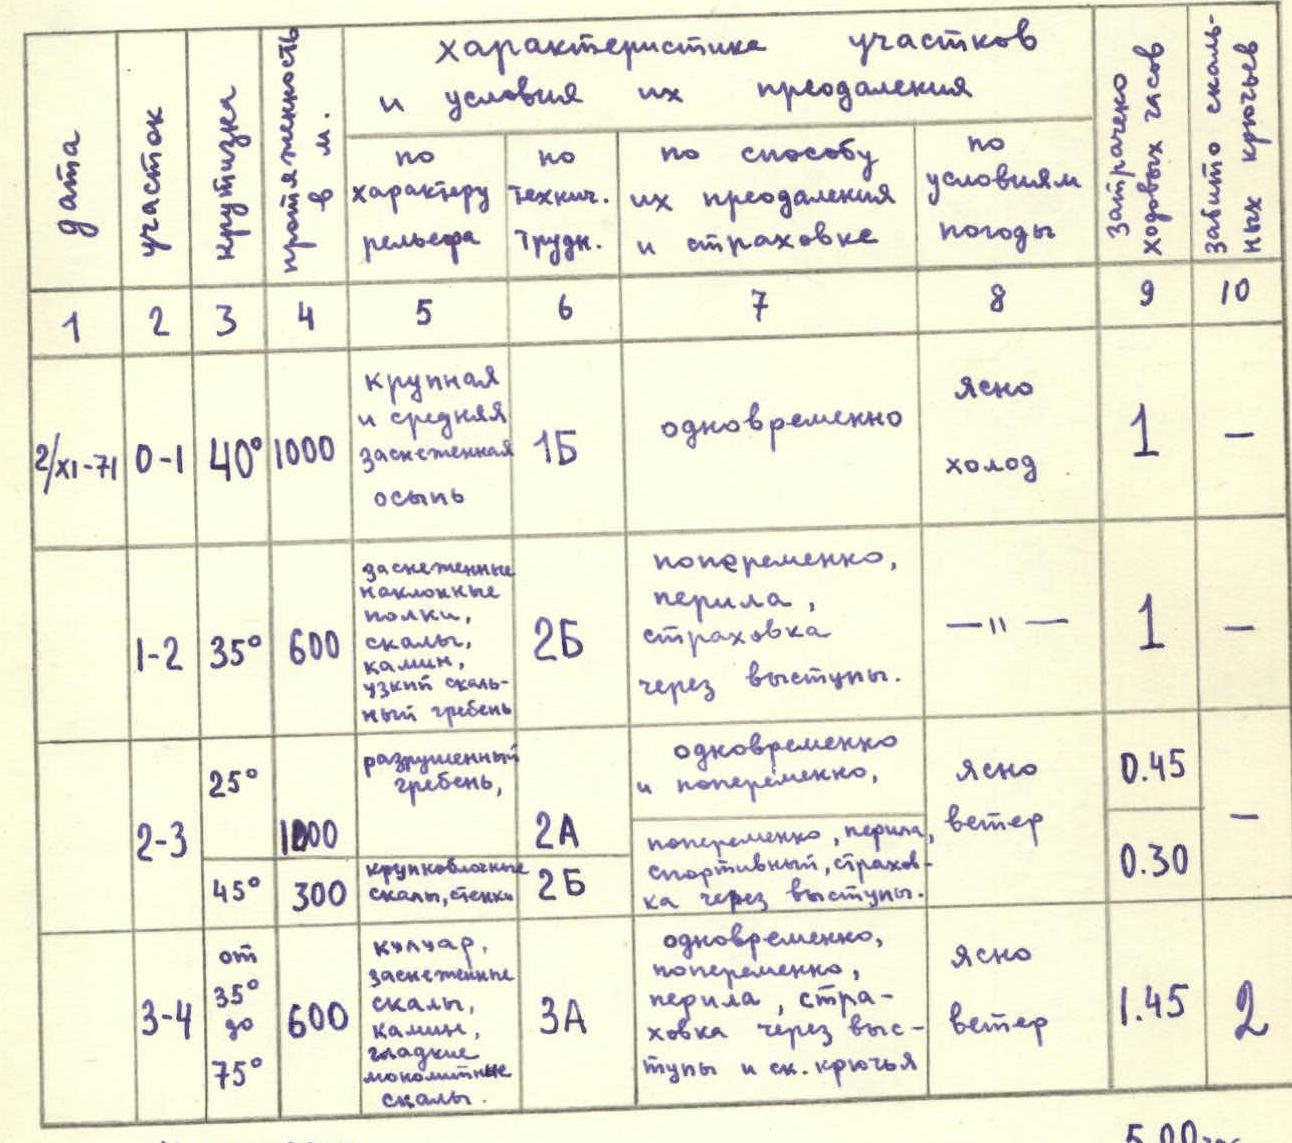 дата
участок
крутизна
протяженность
в м.
характеристика участков
и условия их преодаления
по
характеру
рельефа
по
технич.
трудн.
по способу
их преодаления
и страховке
по
условиям
погоды
затрачено
ходовых часов
забито скаль-
ных крючьев
1 2 3 4 5 6 7 8 9 10
2/XI-71
0-1
40°
1000
крупная
и средняя
заснеженная
осыпь
1Б
одновременно
ясно
холод
1
—
1-2
35°
600
заснеженные
наклонные
полки,
скалы,
камин,
узкий скаль-
ный гребень
2Б
попеременно,
перила,
страховка
через выступы.
— " —
1
—
2-3
25°
1000
разрушенный
гребень,
2А
одновременно
и попеременно,
ясно
ветер
0.45
—
45°
300
крупноблочные
скалы, стенки
2Б
попеременно, перила,
спортивный, страхов-
ка через выступы.
0.30
3-4
от
35°
до
75°
600
кулуар,
заснеженные
скалы,
камин,
гладкие
монолитные
скалы.
3А
одновременно,
попеременно,
перила, стра-
ховка через выс-
тупы и ск. крючья
ясно
ветер
1.45
2
5.00